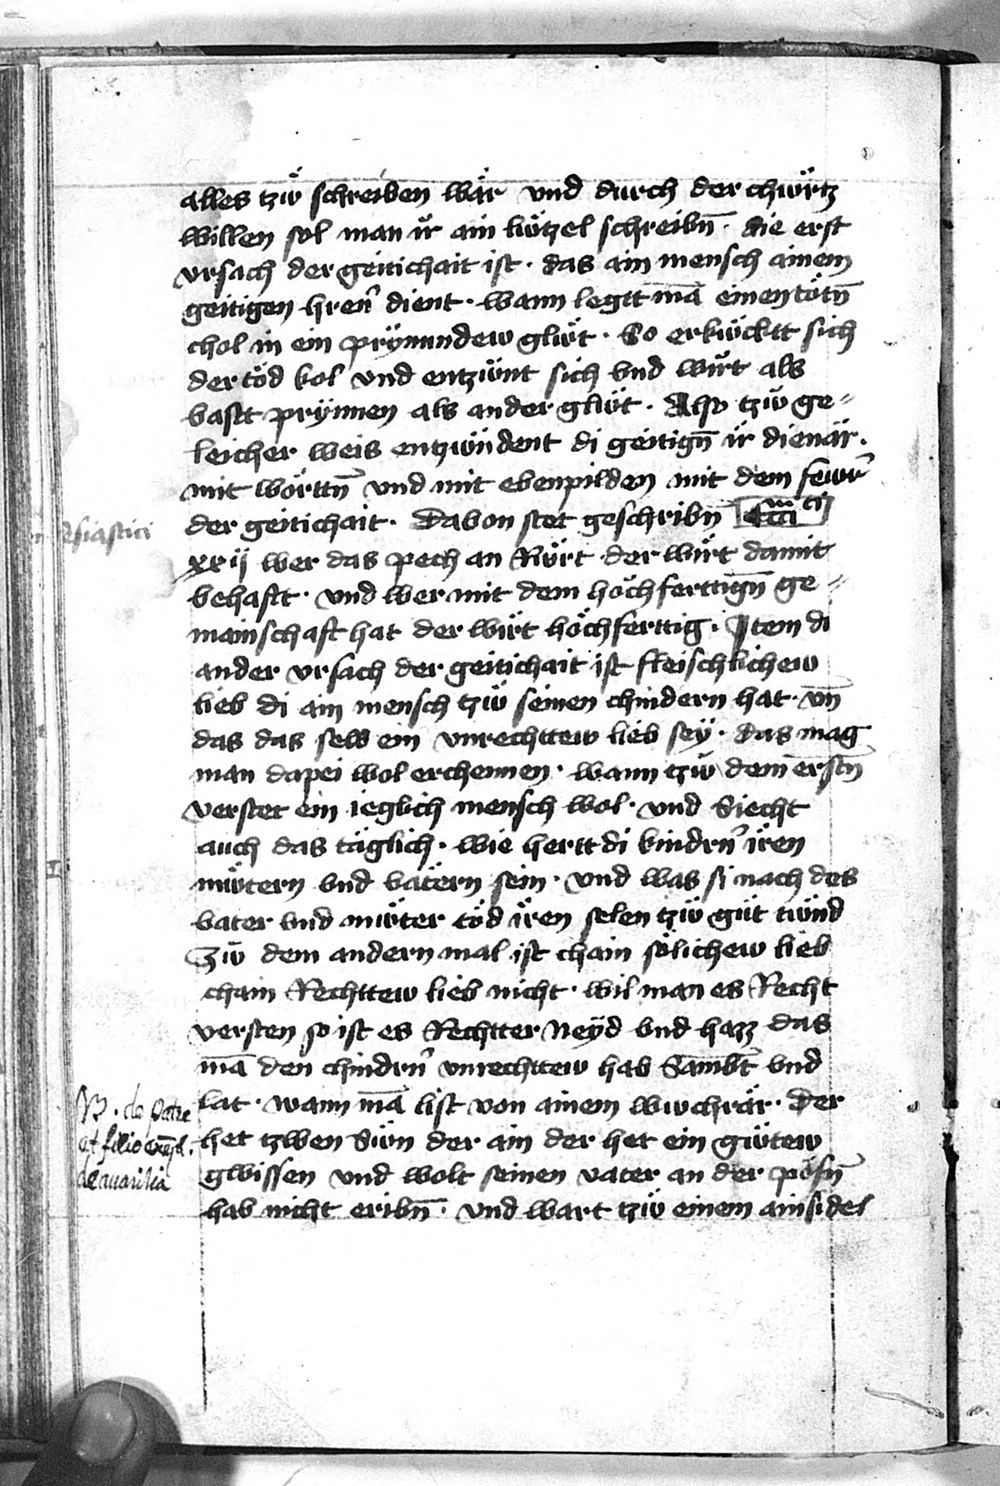 alles tzů schreiben wär vnd durch der chürtz
willen sol man ir ain lützel schreibn̄ · die erst
vrsach der geitichait ist · das ain mensch ainem
geitigen hren̄ dient · wann legtt mā einen tötn̄
chol in ein prÿnnundew glüt · So erkückt sich
der töd kol vnd entzünt sich vnd wirt als
vastt prÿnnen als ander glüt · Also tzů ge⸗
leicher weis entzündent di geitign̄ ir dienär ·
mit worttn̄ vnd mit ebenpilden mit dem fewr̄
der geitichait · Dauon stet geschribn̄
xxij wer das pech an Rürt der wirt damit
behaftt · vnd wer mit dem höchferttign̄ ge⸗
mainschaft hat der wirt höchferttig · Item di
ander vrsach der geitichait ist fleischlichew
lieb di ain mensch tzů seinen chindern hat · vn̄
das das selb ein vnrechttew lieb seÿ · das mag
man dapei wol erchennen · wann tzů dem erstn̄
verstet ein ieglich mensch wol · vnd Siecht
auch das täglich · wie hertt di kindrn̄ iren
mütern vnd vätern sein · vnd was si nach des
vater vnd müter töd iren selen tzů güt tünd
Zů dem andern mal ist chain sölichew lieb
chain Rechttew lieb nicht · wil man es Recht
versten so ist es Rechtter Neÿd vnd hazz das
mā den chindrn̄ vnrechttew hab Sambt̄ vnd
lat · wann mā list von ainem wuchrär · Der
het tzwen Sün der ain der het ein gütew
gwissen vnd wolt seinen vater an der pösn̄
hab nicht eribn̄ · vnd wart tzů einem ainsidel
esiastici
de patre
et filio
de auaritia